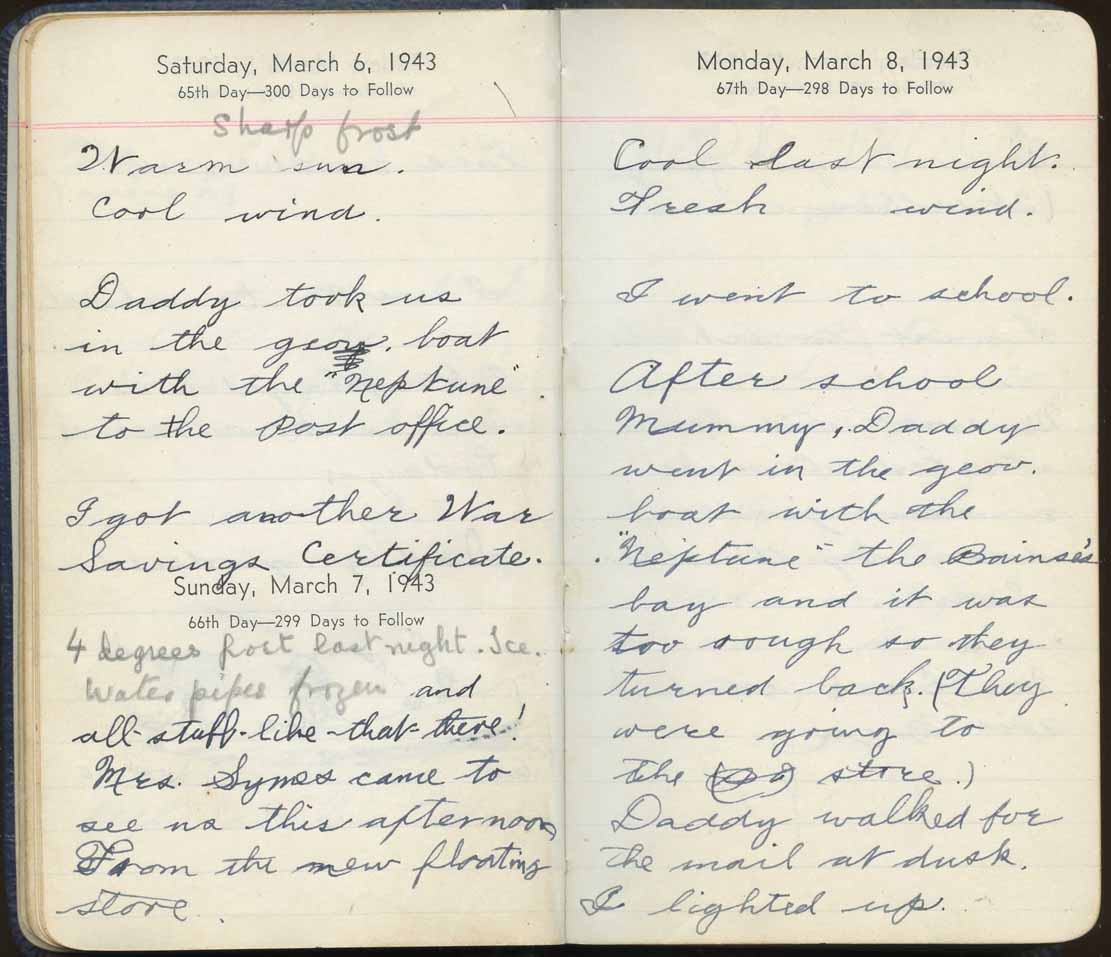 Saturday, March 6, 1943
65th Day—300 Days to Follow
Sharp frost
Warm sun.
Cool wind.
Daddy took us
in the gsov. boat
with the "Neptune"
to the Post office.
I got another War
Savings Certificate.
Sunday, March 7, 1943
66th Day—299 Days to Follow
4 degrees frost last night. Ice.
Water pipes frozen and
all-stuff-like-that-there!
Mrs. Symes came to
see us this afternoon
From the new floating
store.
Monday, March 8, 1943
67th Day—298 Days to Follow
Cool last night.
Fresh wind.
I went to school.
After school
Mummy, Daddy
went in the gov.
boat with the
"Neptune" the Bainses
bay and it was
too rough so they
turned back. (They
were going to
the store.)
Daddy walked for
the mail at dusk.
I lighted up.